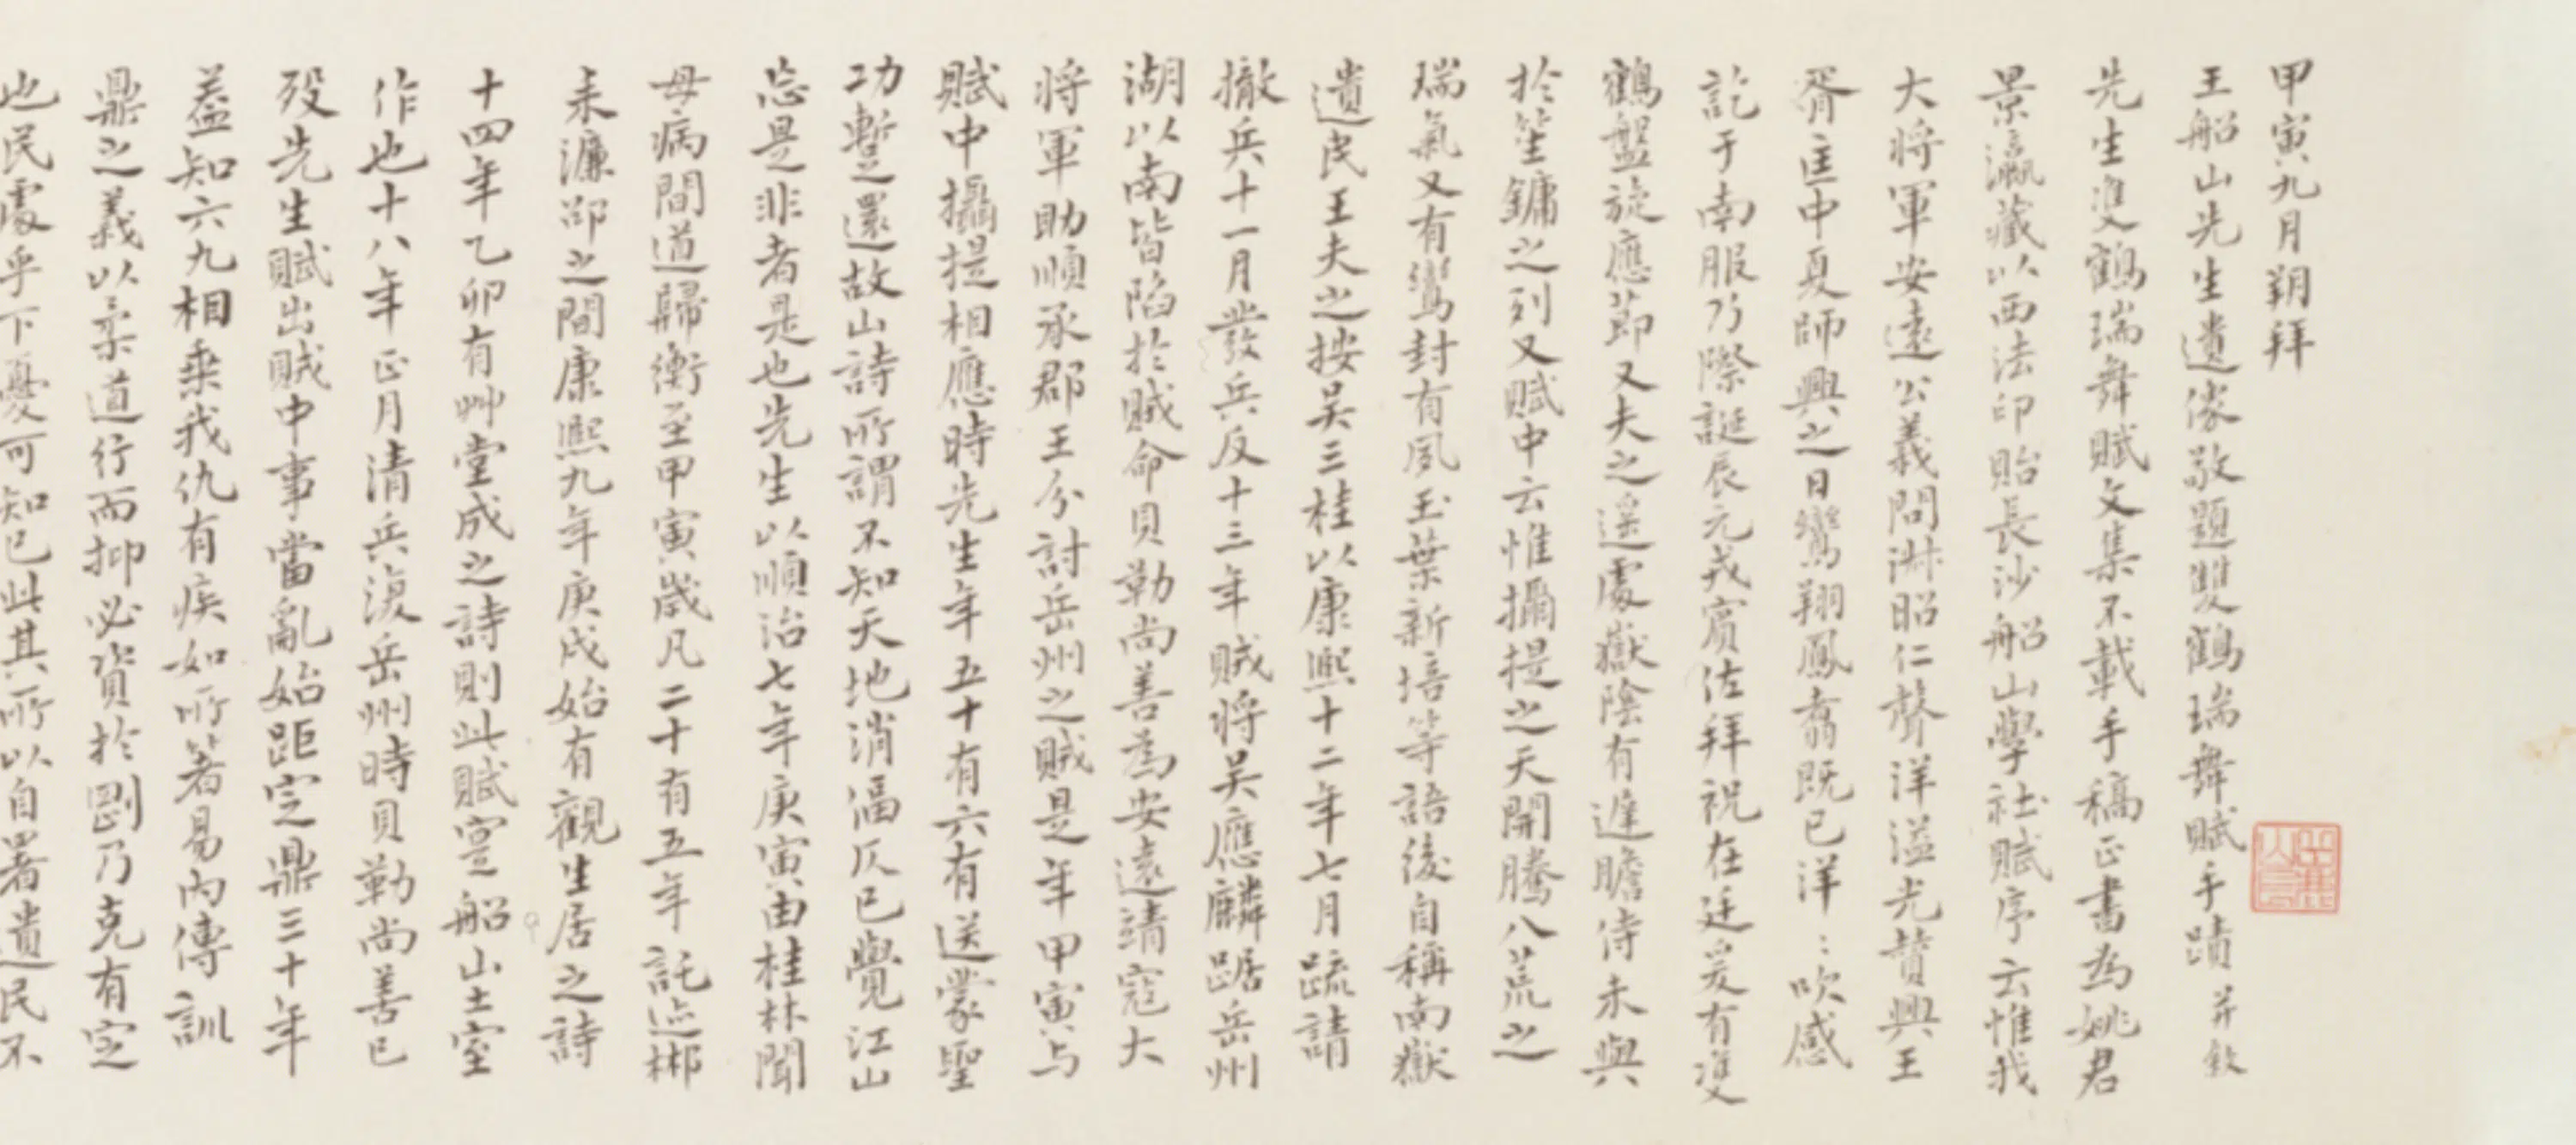 甲寅九月朔拜
王船山先生遺像敬題雙鶴瑞舞賦手蹟并敘
先生雙鶴瑞舞賦文集不載手稿正書為姚君
景瀛藏以西法印貽長沙船山學社賦序云惟我
大將軍安遠公義問淋昭仁聲洋溢光贊興王
胥匡中夏師興之日鸞翔鳳翥既已洋:吹感
訖于南服乃際誕辰元戎賓佐拜祝在廷爰有雙
鶴盤旋應節又夫之遥處嶽陰有進瞻侍未與
於笙鏞之列又賦中云惟攝提之天開騰八荒之
瑞氣又有鸞封有夙玉葉新培等語後自稱南嶽
遺民王夫之按吴三桂以康熙十二年七月疏請
撤兵十一月發兵反十三年賊將吴應麟踞岳州
湖以南皆陷於賊命貝勒尚善為安遠靖寇大
將軍助順承郡王分討岳州之賊是年甲寅与
賦中攝提相應時先生年五十有六有送蒙聖
功暫還故山詩所謂不知天地消偪仄已覺江山
忘是非者是也先生以順治七年庚寅由桂林聞
母病間道歸衡至甲寅歲凡二十有五年託迹郴
耒濂邵之間康熙九年庚戌始有觀生居之詩
十四年乙卯有艸堂成之詩則此賦寔船山土室
作也十八年正月清兵復岳州時貝勒尚善已
歿先生賦出賊中事當亂始距定鼎三十年
蓋知六九相乘我仇有疾如所箸易內傳訓
鼎之義以柔道行而抑必資於剛乃克有定
也民處乎下憂可知已此其所以自署遺民不